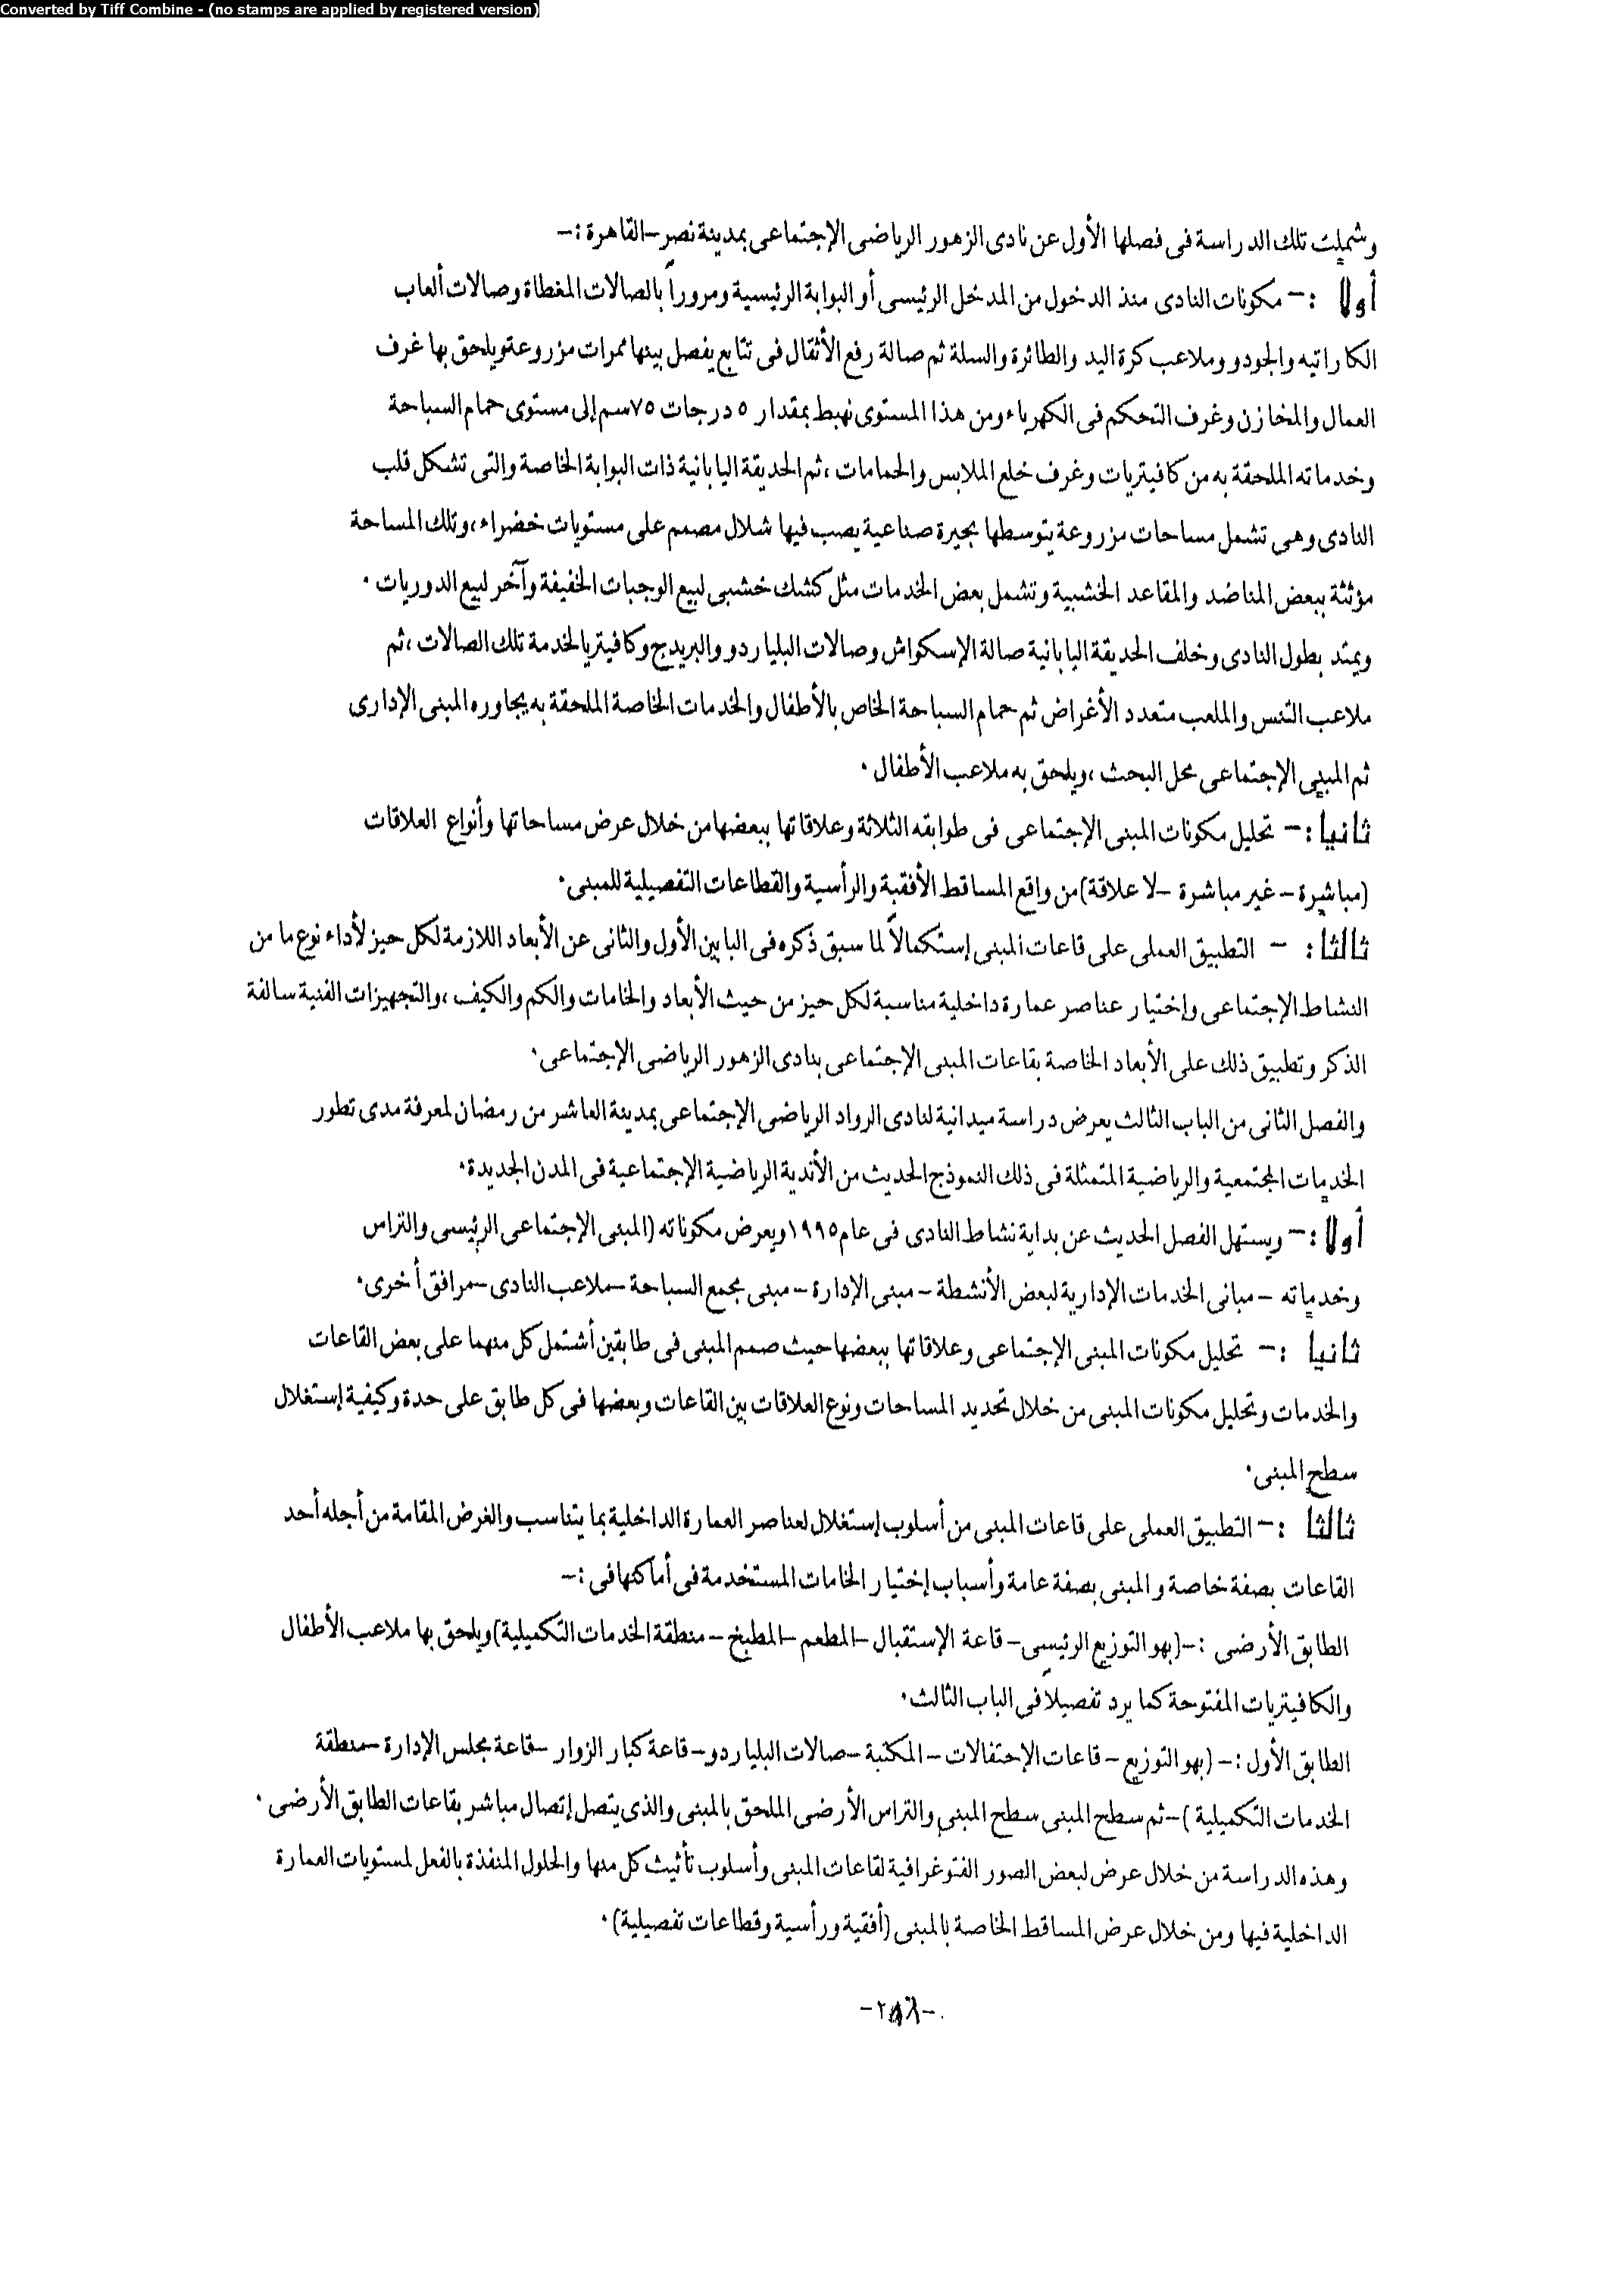 Converted by Tiff Combine - (no stamps are applied by registered version)
وشملت تلك الدراسة فى فصلها الأول عن نادى الزهور الرياضى الإجتماعى بمدينة نصر–القاهرة :–
أولا :– مكونات النادى منذ الدخول من المدخل الرئيسى أو البوابة الرئيسية ومروراً بالصالات المغطاة وصالات ألعاب
الكاراتيه والجودو وملاعب كرة اليد والطائرة والسلة ثم صالة رفع الأثقال فى تتابع يفصل بينها ممرات مزروعة ويلحق بها غرف
العمال والمخازن وغرف التحكم فى الكهرباء ومن هذا المستوى نهبط بمقدار ٥ درجات ٧٥سم إلى مستوى حمام السباحة
وخدماته الملحقة به من كافيتريات وغرف خلع الملابس والحمامات ،ثم الحديقة اليابانية ذات البوابة الخاصة والتى تشكل قلب
النادى وهى تشمل مساحات مزروعة يتوسطها بحيرة صناعية يصب فيها شلال مصمم على مستويات خضراء ،وتلك المساحة
مؤثثة ببعض المناضد والمقاعد الخشبية وتشمل بعض الخدمات مثل كشك خشبى لبيع الوجبات الخفيفة وآخر لبيع الدوريات .
ويمتد بطول النادى وخلف الحديقة اليابانية صالة الإسكواش وصالات البلياردو والبريدج وكافيتريا لخدمة تلك الصالات ،ثم
ملاعب التنس والملعب متعدد الأغراض ثم حمام السباحة الخاص بالأطفال والخدمات الخاصة الملحقة به يجاوره المبنى الإدارى
ثم المبنى الإجتماعى محل البحث ،ويلحق به ملاعب الأطفال .
ثانيا :– تحليل مكونات المبنى الإجتماعى فى طوابقه الثلاثة وعلاقاتها ببعضها من خلال عرض مساحاتها وأنواع العلاقات
(مباشرة – غير مباشرة –لا علاقة) من واقع المساقط الأفقية والرأسية والقطاعات التفصيلية للمبنى.
ثالثا : – التطبيق العملى على قاعات المبنى إستكمالاً لما سبق ذكره فى البابين الأول والثانى عن الأبعاد اللازمة لكل حيز لأداء نوع ما من
النشاط الإجتماعى وإختيار عناصر عمارة داخلية مناسبة لكل حيز من حيث الأبعاد والخامات والكم والكيف ،والتجهيزات الفنية سالفة
الذكر وتطبيق ذلك على الأبعاد الخاصة بقاعات المبنى الإجتماعى بنادى الزهور الرياضى الإجتماعى.
والفصل الثانى من الباب الثالث يعرض دراسة ميدانية لنادى الرواد الرياضى الإجتماعى بمدينة العاشر من رمضان لمعرفة مدى تطور
الخدمات المجتمعية والرياضية المتمثلة فى ذلك النموذج الحديث من الأندية الرياضية الإجتماعية فى المدن الجديدة.
أولا :– ويستهل الفصل الحديث عن بداية نشاط النادى فى عام ١٩٩٥ ويعرض مكوناته (المبنى الإجتماعى الرئيسى والتراس
وخدماته – مبانى الخدمات الإدارية لبعض الأنشطة – مبنى الإدارة – مبنى مجمع السباحة –ملاعب النادى –مرافق أخرى.
ثانيا :– تحليل مكونات المبنى الإجتماعى وعلاقاتها ببعضها حيث صمم المبنى فى طابقين أشتمل كل منهما على بعض القاعات
والخدمات وتحليل مكونات المبنى من خلال تحديد المساحات ونوع العلاقات بين القاعات وبعضها فى كل طابق على حدة وكيفية إستغلال
سطح المبنى.
ثالثا :– التطبيق العملى على قاعات المبنى من أسلوب إستغلال لعناصر العمارة الداخلية بما يتناسب والغرض المقامة من أجله أحد
القاعات بصفة خاصة والمبنى بصفة عامة وأسباب إختيار الخامات المستخدمة فى أماكنها فى :–
الطابق الأرضى :–(بهو التوزيع الرئيسى– قاعة الإستقبال –المطعم –المطبخ – منطقة الخدمات التكميلية) ويلحق بها ملاعب الأطفال
والكافيتريات المفتوحة كما يرد تفصيلاً فى الباب الثالث.
الطابق الأول :– (بهو التوزيع – قاعات الإحتفالات – المكتبة –صالات البلياردو– قاعة كبار الزوار –قاعة مجلس الإدارة –منطقة
الخدمات التكميلية )–ثم سطح المبنى سطح المبنى والتراس الأرضى الملحق بالمبنى والذى يتصل إتصال مباشر بقاعات الطابق الأرضى .
وهذه الدراسة من خلال عرض لبعض الصور الفتوغرافية لقاعات المبنى وأسلوب تأثيث كل منها والحلول المنفذة بالفعل لمستويات العمارة
الداخلية فيها ومن خلال عرض المساقط الخاصة بالمبنى (أفقية ورأسية وقطاعات تفصيلية).